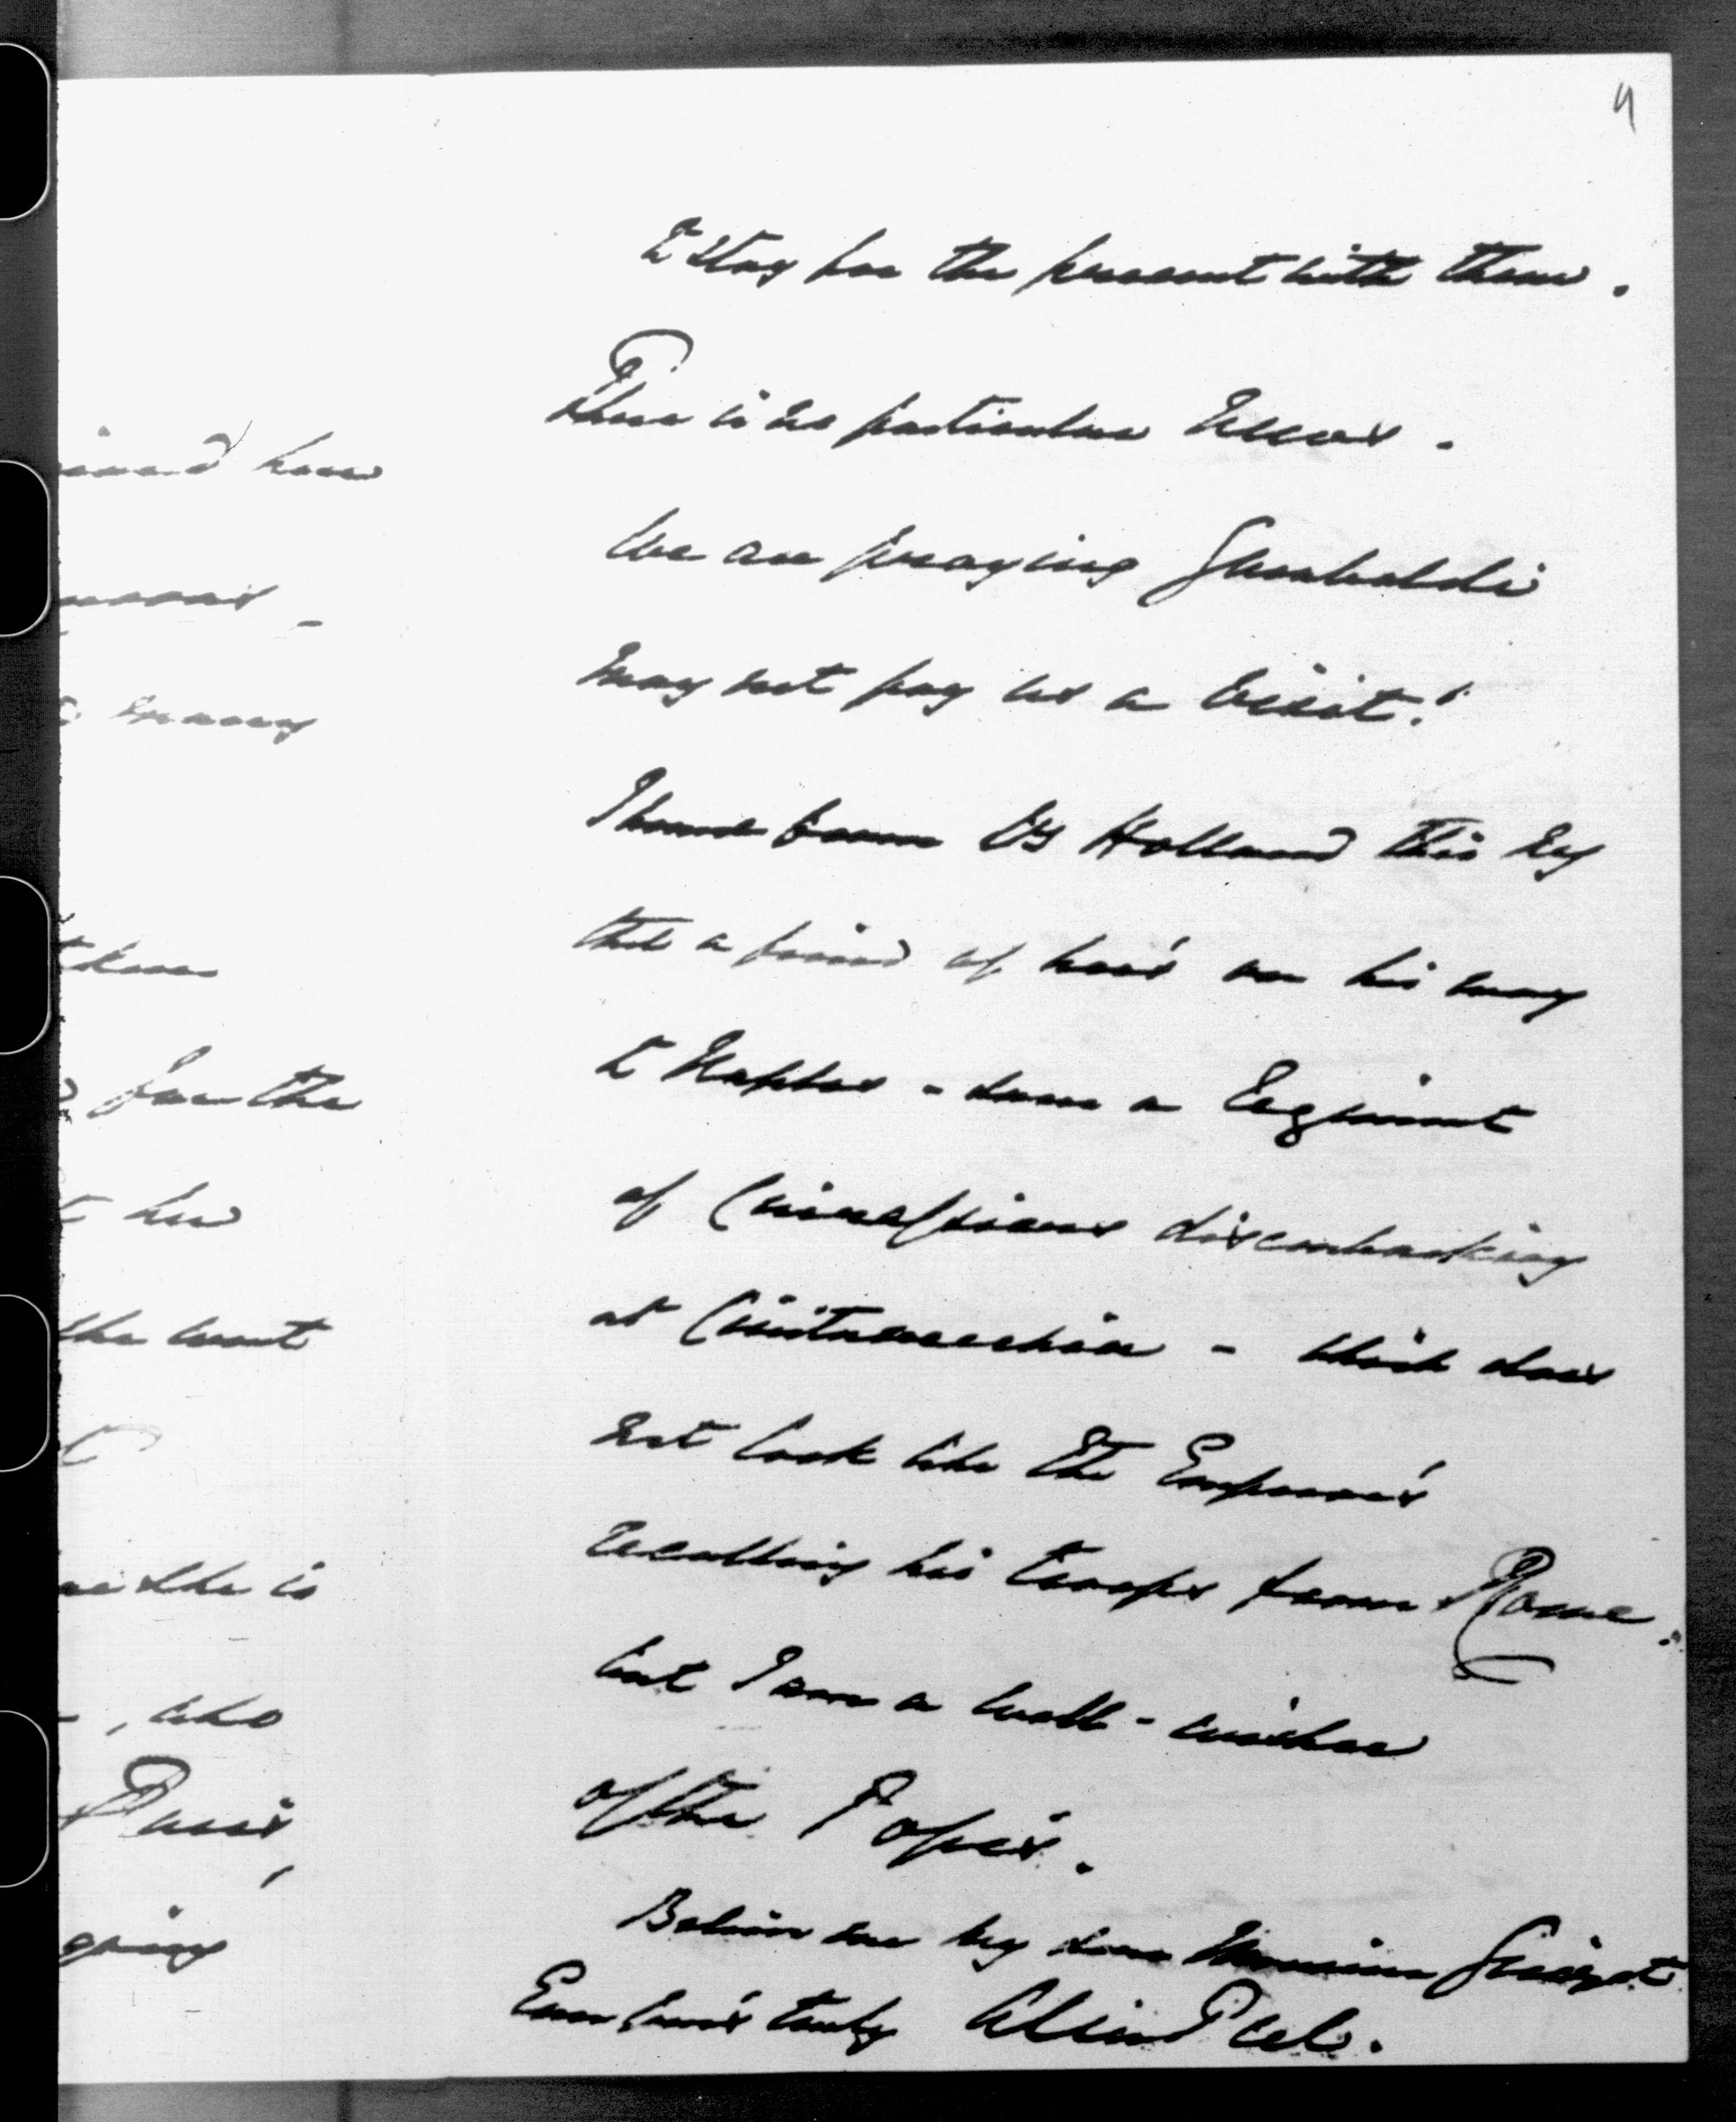 4
to stay for the present with them.
There is no particular News -
We are praying Garibaldi
may not pay us a visit!
I heard from Ly Holland this dy
that a friend of her's on his way
to Naples - saw a Regiment
of Cuirassiers disembarking
at Civitavecchia - which does
not look like the Emperor's
recalling his troops from Rome.
but I am a well-wisher
of the Pope's.
Believe me my dear Monsieur Guizot
Ever your's truly Peel.
have
many
for the
her
the want
she is
, who
Paris,
going